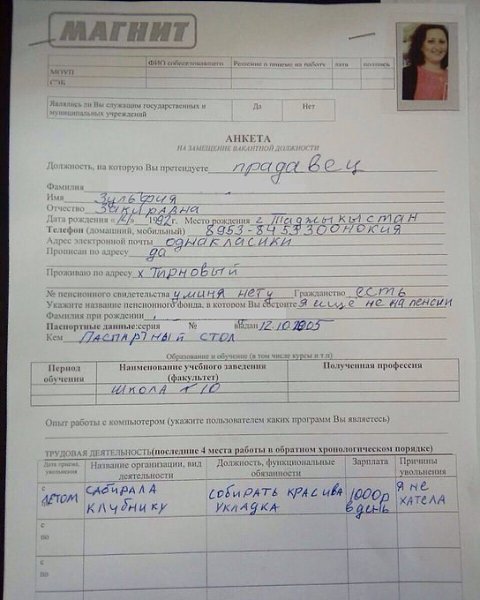 МАГНИТ
ФИО собеседовавшего Решение о приеме на работу дата подпись
МОУП
СЭБ
Являлись ли Вы служащим государственных и муниципальных учреждений Да Нет
АНКЕТА
НА ЗАМЕЩЕНИЕ ВАКАНТНОЙ ДОЛЖНОСТИ
Должность, на которую Вы претендуете прадавец
Фамилия
Имя Зульфия
Отчество Закировна
Дата рождения 1992г. Место рождения г Таджыкыстан
Телефон (домашний, мобильный) 8953-8453300нокия
Адрес электронной почты однакласики
Прописан по адресу да
Проживаю по адресу х Тирновый
№ пенсионного свидетельства у миня нету Гражданство есть
Укажите название пенсионного фонда, в котором Вы состоите я ище не на пенсии
Фамилия при рождении
Паспортные данные: серия № выдан 12.10.2005
Кем Паспартный стол
Образование и обучение (в том числе курсы и т.п)
Период обучения Наименование учебного заведения (факультет) Полученная профессия
школа №10
Опыт работы с компьютером (укажите пользователем каких программ Вы являетесь)
ТРУДОВАЯ ДЕЯТЕЛЬНОСТЬ(последние 4 места работы в обратном хронологическом порядке)
Дата приема, увольнения Название организации, вид деятельности Должность, функциональные обязанности Зарплата Причины увольнения
с летом сабирала клубнику собирать красива укладка 1000р в день я не хатела
с
по
с
по